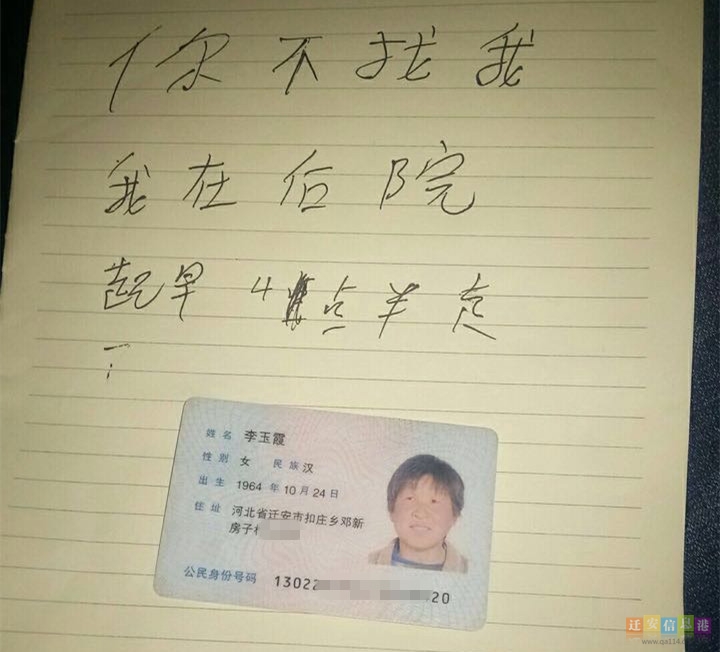 你不找我
我在后院
起早4点半走
姓名 李玉霞
性别 女 民族 汉
出生 1964 年 10 月 24 日
住址 河北省迁安市扣庄乡邓新
房子村
公民身份号码 13022 20
迁安信息港